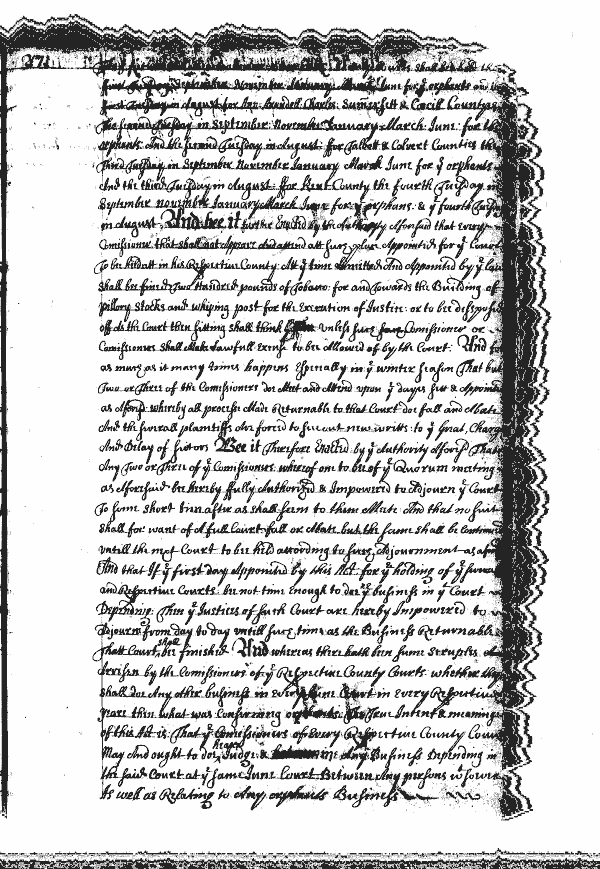 271
first Tuesday September November January March June for yͤ orphants and
first Tuesday in august for Ann Arundell Charles Sumersett & Cecill Countyes
The second Tuesday in September November January March June for the
orphants And the second Tuesday in August for Talbott & Calvert Counties the
Third Tuesday in September November January March June for yͤ orphents
And the third Tuesday in August for Kent County the fourth Tuesday in
September november January March June for yͤ orphans & yͤ fourth Tuesday
in august And bee it further Enacted by the Authority Aforsaid that every
Comisioner that shall not Appeare and attend att such Appointed for yͤ Court
To be held att in his Respective County Att yͤ time Limitted And Appointed by yͤ Law
shall bee fined Two Hundred pounds of Tobacco for and Towards the Building of
pillory Stocks and whiping post for the Execution of Justice or to bee disposed
off as the Court then sitting shall think unless such Comissioner or
Comisioners shall Make Lawfull Excuse to bee allowed of by the Court And for
as much as it many times happens Especially in yͤ winter season That but
Two or Three of the Comisioners doe Meet and Attend upon yͤ dayes sett & Appointed
as Aforsd whereby all processe Made Returnable to that Court doe fall and Abate
And the severall plaintiffs Are forced to sue out new writts to yͤ great Charge
And Delay of suitors Bee it Therefore Enacted by yͤ Authority Aforsd That
Any Two or Three of yͤ Comisioners whereof one to be of yͤ Quorum meeting
as Aforesaid bee hereby ffully Authorized & Impowered to Adjourn yͤ Court
To some short time after as shall seem to them Meete And that no suit
shall for want of A full Court fall or Abate but the same shall be continued
untill the next Court to bee held according to such Adjournment as afors
And that If yͤ first day Appointed by this Act for yͤ holding of yͤ severall
and Respective Courts bee not time enough to doe yͤ business in yͤ Court
Depending Then yͤ Justices of such Court are hereby Impowered to
Adjourn from day to day untill such time as the Business Returnable
that Court shall bee finished And whereas there hath been some scruples
Arrisen by the Comissioners of yͤ Respective County Courts whether they
shall doe Any other business in every June Court in every Respective
yeare then what was conserning orphants The True Intent & meaning
of this Act is That yͤ Comissioners of every Respective County Court
May And ought to doe Judge & heare Any Business Depending in
the said Court at yͤ same June Court Between Any persons wͭsoever
As well as Relating to Any orphants Business